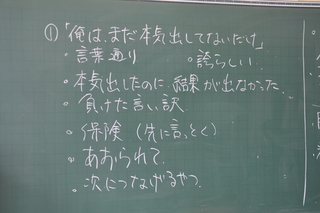 ①「俺は、まだ本気出してないだけ」
・言葉通り ・誇らしい
・本気出したのに、結果が出なかった.
・負けた言い訳
・保険（先に言っとく）
・あおられて.
・次につなげるやつ.